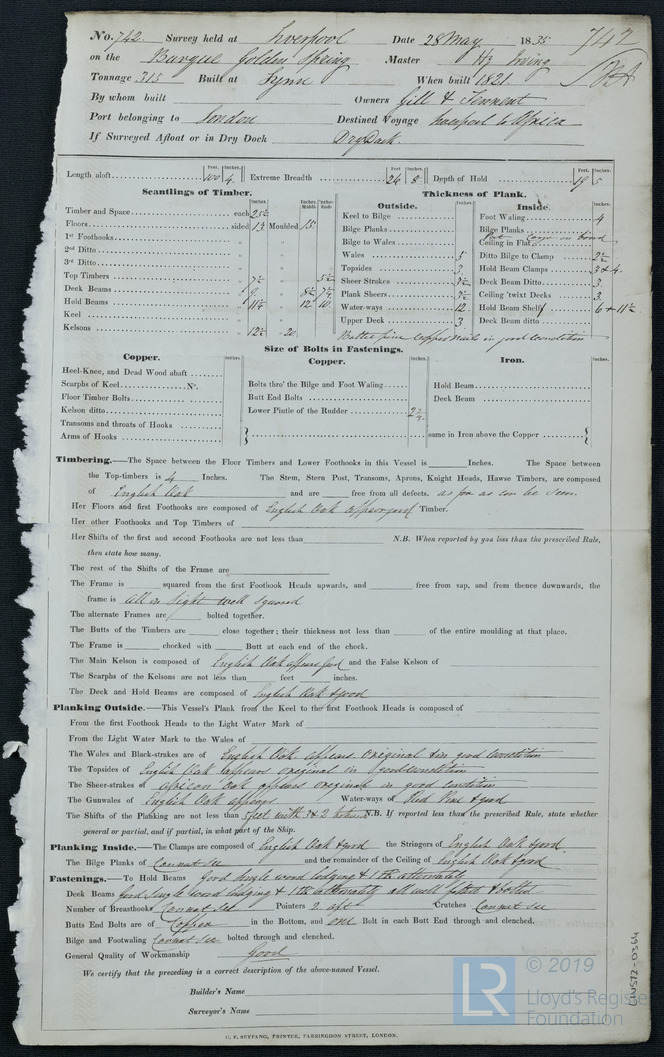 No. 742 Survey held at Liverpool Date 28 May 1835 747
on the Barque Golden Spring Master Hy Irving
Tonnage 315 Built at Lynn When built 1821
By whom built Owners Gill & Tennent
Port belonging to London Destined Voyage Liverpool to Africa
If Surveyed Afloat or in Dry Dock Dry Dock.
Feet. Inches. Feet. Inches. Feet. Inches.
Length aloft 100 4. Extreme Breadth 24 8 Depth of Hold 19 5
Scantlings of Timber.
Inches. Inches. Middle. Inches. Ends
Timber and Space each 25½
Floors sided 13 Moulded 13
1st Foothooks
2nd Ditto
3rd Ditto
Top Timbers 7½ 5½
Deck Beams 9. 8½ 7½
Hold Beams 11½ 12 10.
Keel
Kelsons 12½ 20
Thickness of Plank.
Outside. Inches.
Keel to Bilge
Bilge Planks
Bilge to Wales
Wales 5
Topsides 3.
Sheer Strakes 3½
Plank Sheers 3½
Water-ways 12.
Upper Deck 3.
Inside. Inches.
Foot Waling 4
Bilge Planks
Ceiling in Flat
Ditto Bilge to Clamp 2½
Hold Beam Clamps 3 & 4.
Deck Beam Ditto 3.
Ceiling 'twixt Decks 3.
Hold Beam Shelf 6 & 11½
Deck Beam ditto
copper nails in good condition
Size of Bolts in Fastenings.
Copper. Inches.
Heel-Knee, and Dead Wood abaft
Scarphs of Keel No.
Floor Timber Bolts
Kelson ditto
Transoms and throats of Hooks
Arms of Hooks
Copper. Inches.
Bolts thro' the Bilge and Foot Waling
Butt End Bolts
Lower Pintle of the Rudder 2¾
same in Iron above the Copper
Iron. Inches.
Hold Beam
Deck Beam
Timbering.—The Space between the Floor Timbers and Lower Foothooks in this Vessel is Inches. The Space between
the Top-timbers is 4 Inches. The Stem, Stern Post, Transoms, Aprons, Knight Heads, Hawse Timbers, are composed
of English Oak and are free from all defects. as far as can be seen.
Her Floors and first Foothooks are composed of English Oak appears good Timber.
Her other Foothooks and Top Timbers of
Her Shifts of the first and second Foothooks are not less than N.B. When reported by you less than the prescribed Rule,
then state how many.
The rest of the Shifts of the Frame are
The Frame is squared from the first Foothook Heads upwards, and free from sap, and from thence downwards, the
frame is all in Sight well squared
The alternate Frames are bolted together.
The Butts of the Timbers are close together; their thickness not less than of the entire moulding at that place.
The Frame is chocked with Butt at each end of the chock.
The Main Kelson is composed of English Oak appears good and the False Kelson of
The Scarphs of the Kelsons are not less than feet inches.
The Deck and Hold Beams are composed of English Oak & good
Planking Outside.—This Vessel's Plank from the Keel to the first Foothook Heads is composed of
From the first Foothook Heads to the Light Water Mark of
From the Light Water Mark to the Wales of
The Wales and Black-strakes are of English Oak appears Original & in good Condition
The Topsides of English Oak appears original in good condition
The Sheer-strakes of African Oak appears original in good condition
The Gunwales of English Oak appears Water-ways of Red Pine & good
The Shifts of the Planking are not less than 5 feet with 3 & 2 between N.B. If reported less than the prescribed Rule, state whether
general or partial, and if partial, in what part of the Ship.
Planking Inside.—The Clamps are composed of English Oak & good the Stringers of English Oak & good
The Bilge Planks of Cannot See and the remainder of the Ceiling of English Oak & good
Fastenings.—To Hold Beams good single wood lodging & 1 Ith alternately
Deck Beams good Single Wood lodging & 1 Ith alternately all well fitted & bolted
Number of Breasthooks Cannot See Pointers 2 aft Crutches Cannot See
Butts End Bolts are of Copper in the Bottom, and one Bolt in each Butt End through and clenched.
Bilge and Footwaling Cannot See bolted through and clenched.
General Quality of Workmanship Good
We certify that the preceding is a correct description of the above-named Vessel.
Builder's Name
Surveyor's Name
C. F. SEYFANG, PRINTER, FARRINGDON STREET, LONDON.
LR © 2019
Lloyd's Register
Foundation